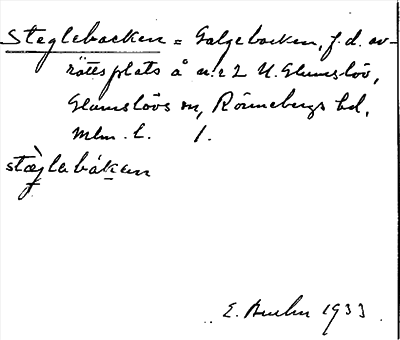 Steglebacken = Galgebacken, f.d. av-
rättsplats å nr 2 N. Glumslöv,
Glumslövs sn, Rönnebergs hd,
Mlm. l. 1.
stæglabákan
E. 1933